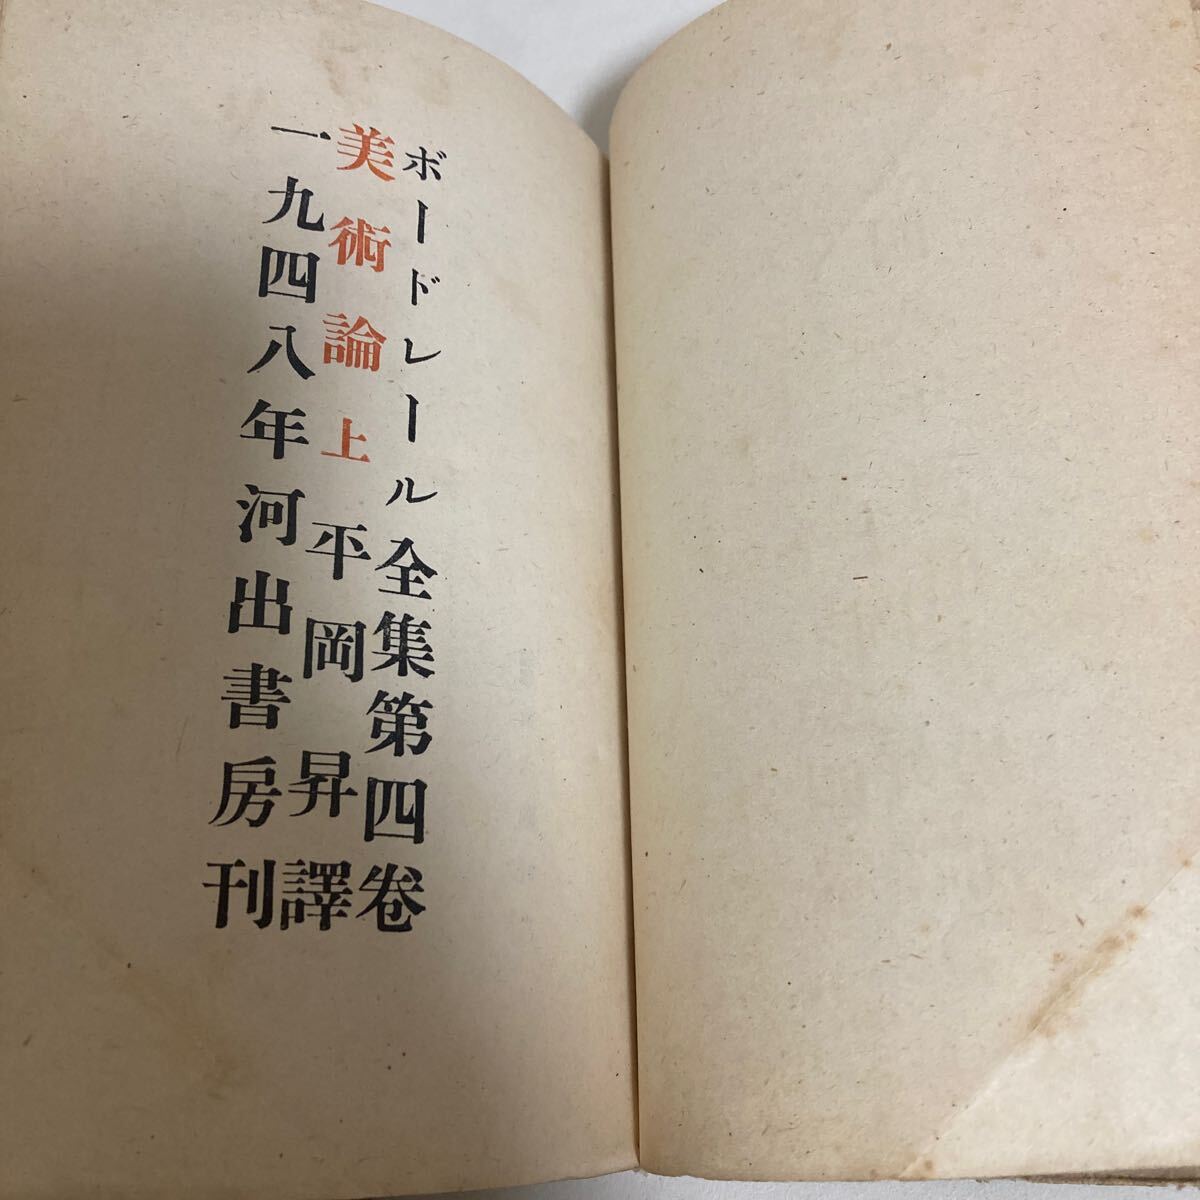 ボードレール全集第四卷
美術論上 平岡昇譯
一九四八年河出書房刊